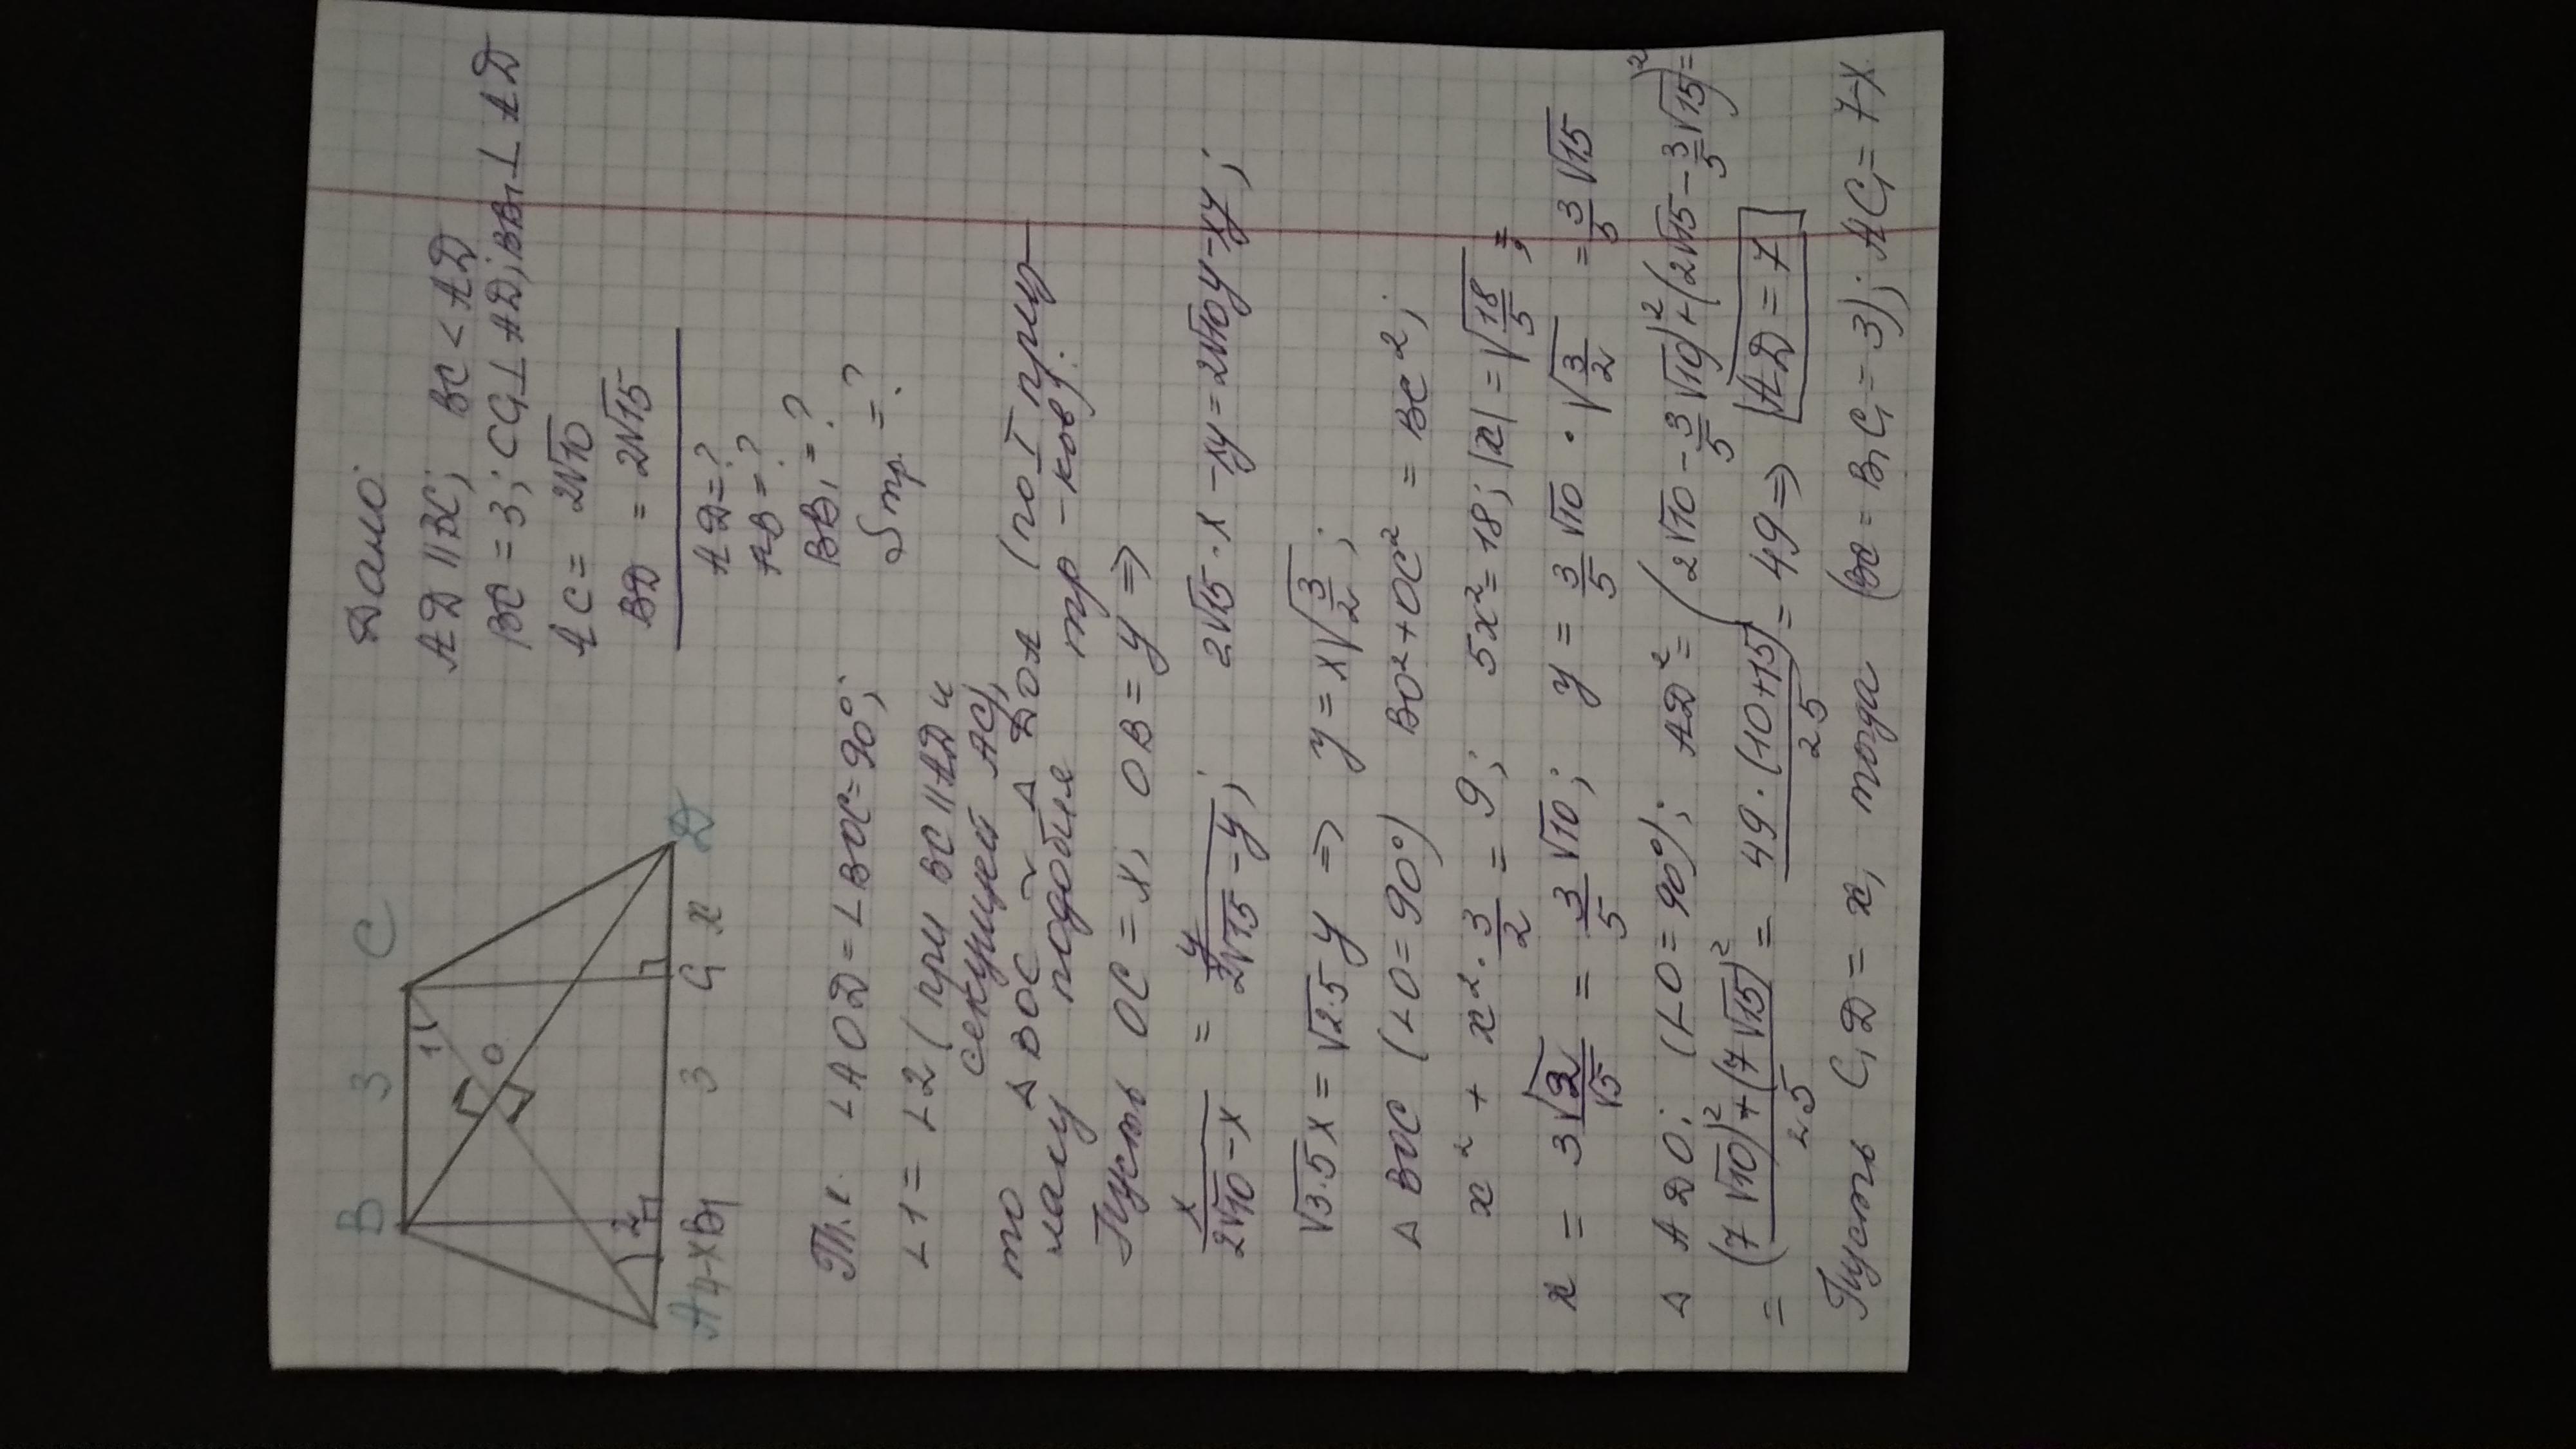 Дано:
AD || BC; BC < AD
BC = 3; CC₁ ⊥ AD; BB₁ ⊥ AD
AC = 2√10
BD = 2√15
AD = ?
AB = ?
BB₁ = ?
Sтр. = ?
B 3 C
1
O
2
A 4-x B₁ 3 C₁ x D
Т.к. ∠AOD = ∠BOC = 90°;
∠1 = ∠2 (при BC || AD и
секущей AC),
то △BOC ~ △DOA (по I приз-
наку подобия тр-ков):
Пусть OC = x, OB = y ⇒
x/(2√10 - x) = y/(2√15 - y); 2√15 · x - xy = 2√10 y - xy;
√3·5 x = √2·5 y ⇒ y = x√(3/2);
△BOC (∠O = 90°) BO² + OC² = BC²;
x² + x² · 3/2 = 9; 5x² = 18; |x| = √(18/5);
x = 3√2/√5 = 3/5 √10; y = 3/5 √10 · √(3/2) = 3/5 √15
△ADO: (∠O = 90°); AD² = (2√10 - 3/5 √10)² + (2√15 - 3/5 √15)² =
= ((7√10)² + (7√15)²)/25 = 49 · (10 + 15)/25 = 49 ⇒ AD = 7
Пусть C₁D = x, тогда (BC = B₁C₁ = 3); AC₁ = 7-x